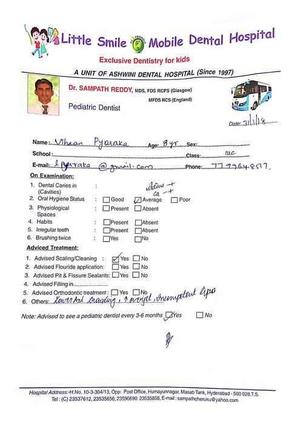 Little Smile Mobile Dental Hospital
Exclusive Dentistry for kids
A UNIT OF ASHWINI DENTAL HOSPITAL (Since 1997)
Dr. SAMPATH REDDY, MDS, FDS RCPS (Glasgow)
MFDS RCS (England)
Pediatric Dentist
Date:
Name: Age: 8yr Sex:
School: Class:
E-mail: @gmail.com Phone:
On Examination:
1. Dental Caries in (Cavities)
2. Oral Hygiene Status : Good Average Poor
3. Physiological Spaces : Present Absent
4. Habits : Present Absent
5. Irregular teeth : Present Absent
6. Brushing twice : Yes No
Adviced Treatment:
1. Advised Scaling/Cleaning : Yes No
2. Advised Flouride application: Yes No
3. Advised Pit & Fissure Sealants: Yes No
4. Advised Filling in
5. Advised Orthodontic treatment : Yes No
6. Others:
Note: Advised to see a pediatric dentist every 3-6 months
Hospital Address: H.No. 10-3-304/13, Opp: Post Office, Humayunnagar, Masab Tank, Hyderabad - 500 028.T.S.
Tel: (C) 23537612, 23535656, 23590690, 23535858, E-mail: sampathcheruku@yahoo.com